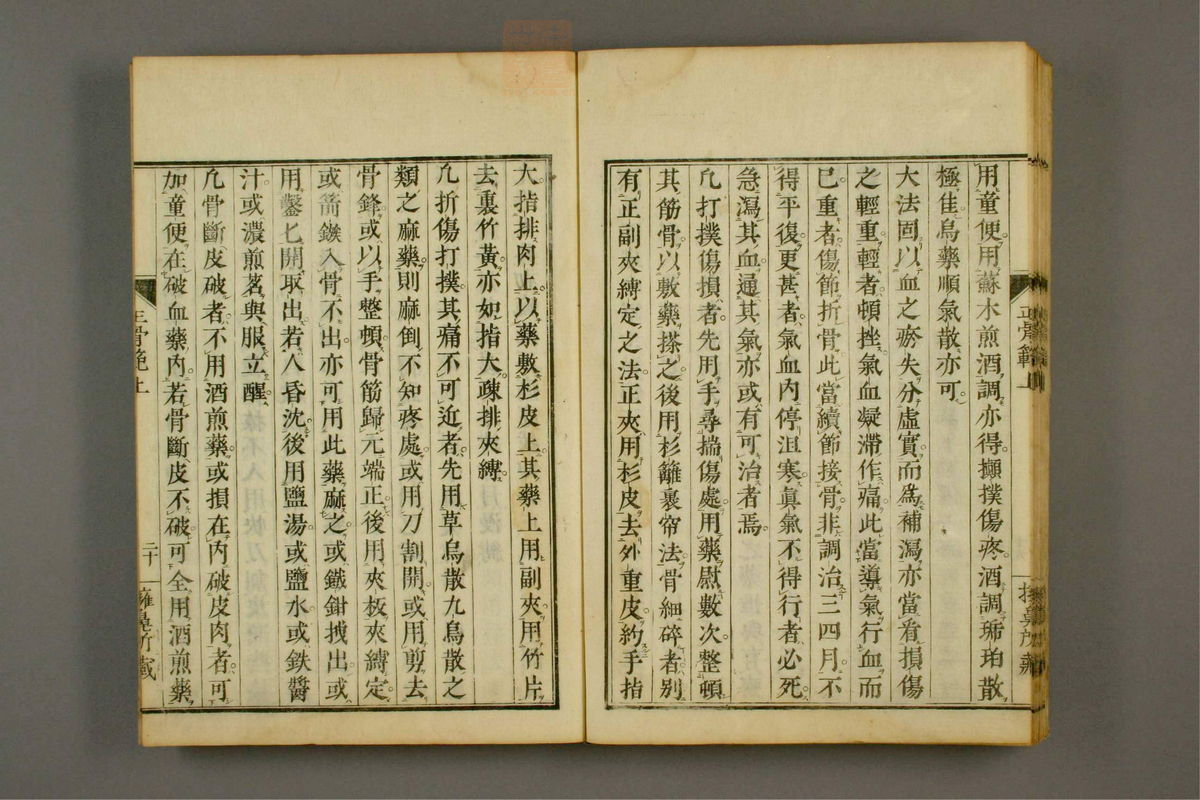 用童便用蘇木煎酒調亦得攧撲傷疼酒調琥珀散
極佳烏藥順氣散亦可
大法固以血之瘀失分虛實而為補瀉亦當看損傷
之輕重輕者頓挫氣血凝滯作痛此當導氣行血而
已重者傷節折骨此當續節接骨非調治三四月不
得平復更甚者氣血內停沮寒眞氣不得行者必死
急瀉其血通其氣亦或有可治者焉
凢打撲傷損者先用手尋揣傷處用藥慰數次整頓
其筋骨以敷藥搽之後用杉籬裹帘法骨細碎者別
有正副夾縛定之法正夾用杉皮去外重皮約手指
正骨範上
大指排肉上以藥敷杉皮上其藥上用副夾用竹片
去裏竹黃亦如指大疎排夾縛
凢折傷打撲其痛不可近者先用草烏散九烏散之
類之麻藥則麻倒不知疼處或用刀割開或用剪去
骨鋒或以手整頓骨筋歸元端正後用夾板夾縛定
或箭鏃入骨不出亦可用此藥麻之或鐵鉗拽出或
用鑿匕開取出若人昏沈後用鹽湯或鹽水或鉄醬
汁或濃煎茗與服立醒
凢骨斷皮破者不用酒煎藥或損在內破皮肉者可
加童便在破血藥內若骨斷皮不破可全用酒煎藥
正骨範上
二十